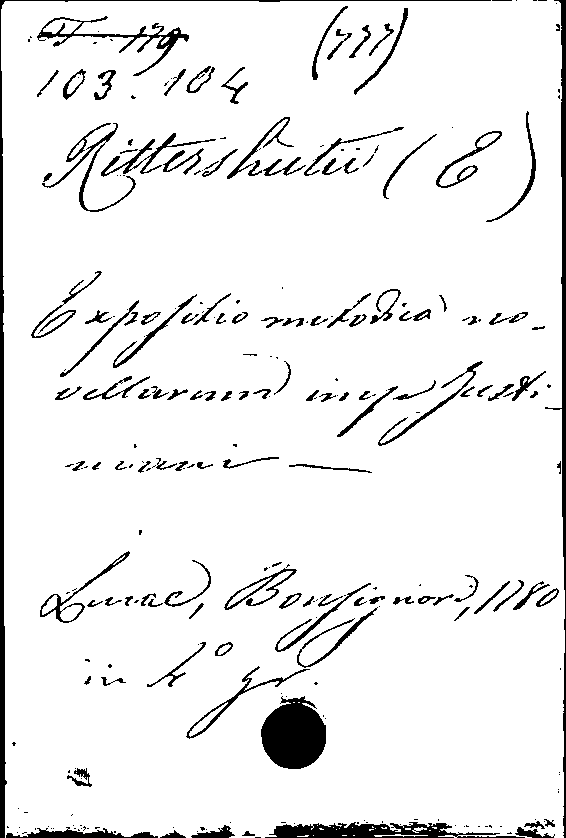 T. 179 (777)
103. 104
Rittershutii (E)
Expositio metodica no-
vellarum imp. Justi-
niani —
Lucae, Bonsignori, 1780
in 4° gr.